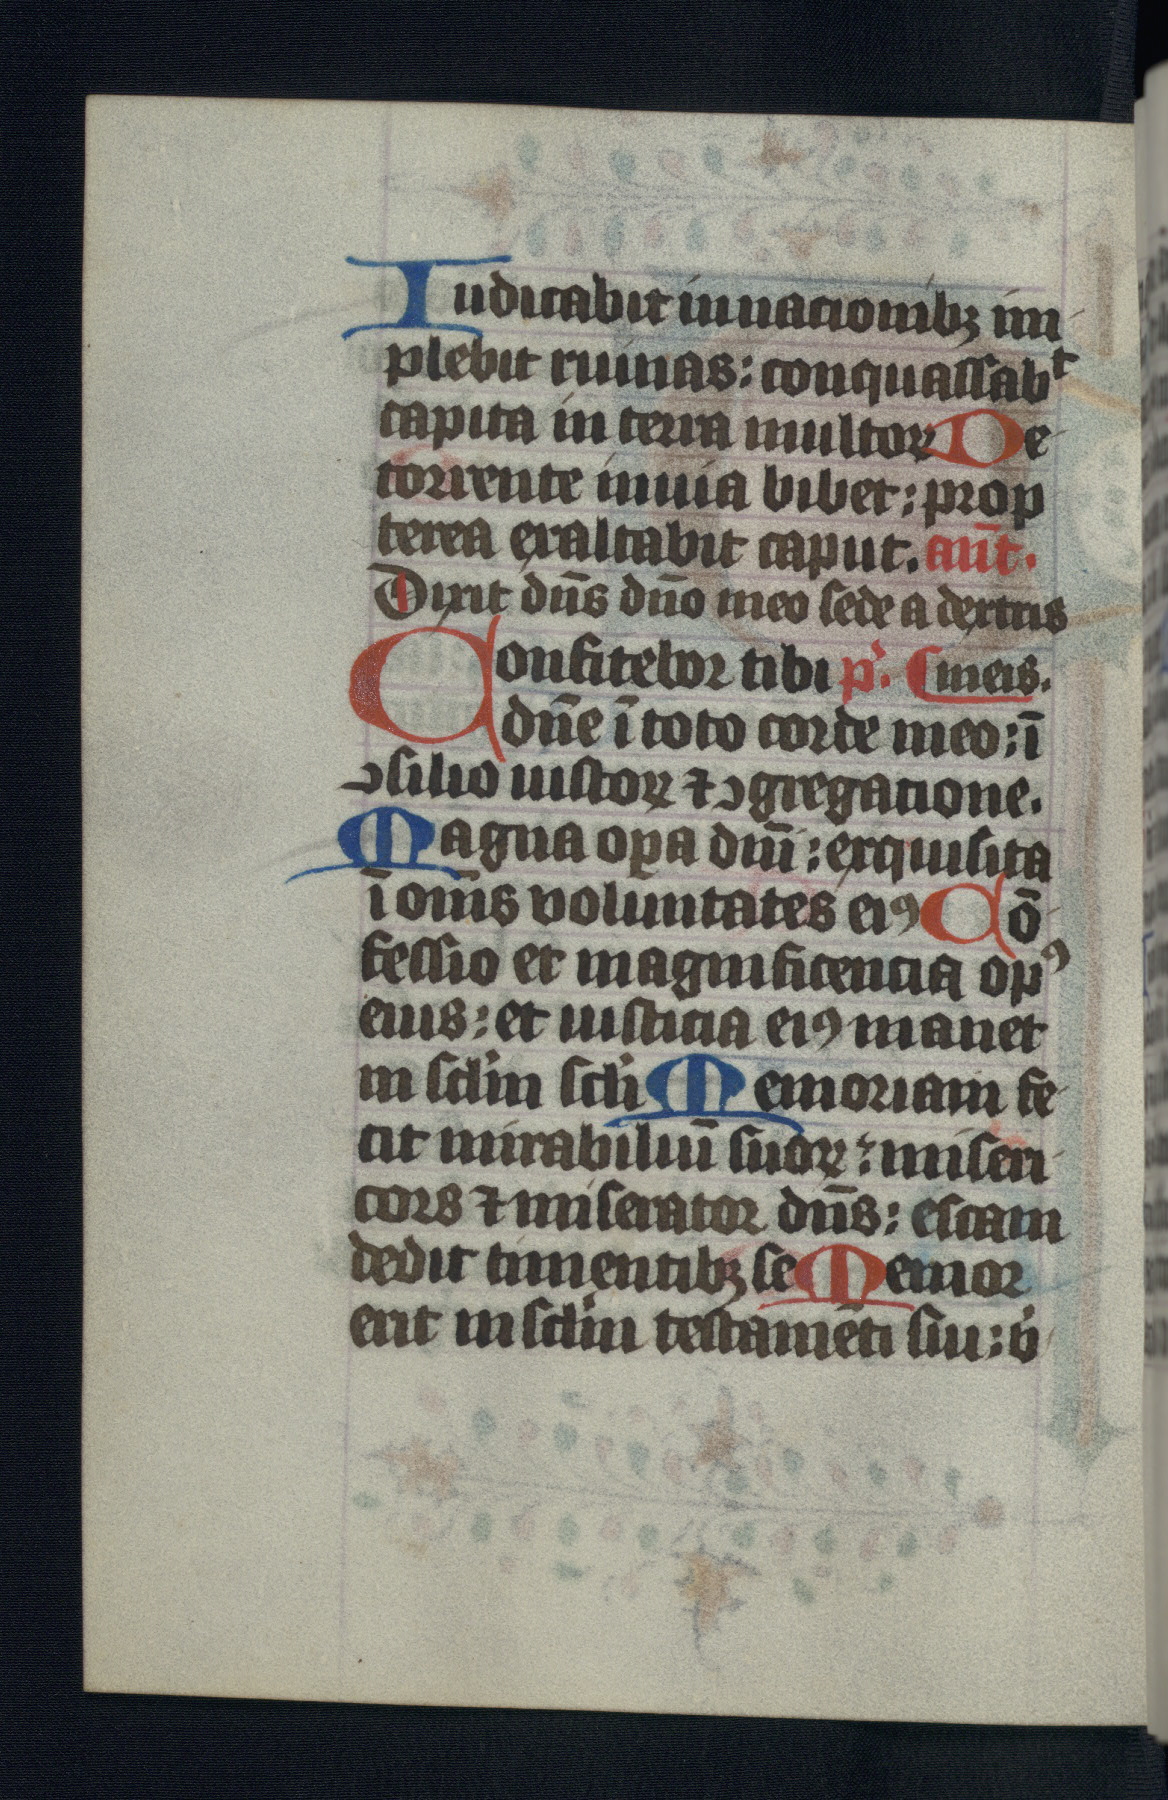 Iudicabit in nacionibꝫ im
plebit ruinas: conquassabᵗ
capita in terra multoꝝ De
torrente in uia bibet: prop
terea exaltabit caput. an̄t.
Dixit dn̄s dn̄o meo sede a dextris
Confitebor tibi p̓. meis.
dn̄e ī toto corde meo: ī
ↄsilio iustoꝝ ⁊ ↄgregatione.
Magna oꝑa dn̄i: exquisita
ī om̄s voluntates eiꝰ Cō
fessio et magnificencia opꝰ
eius: et iusticia eiꝰ manet
in scl̓m scl̓i Memoriam fe
cit mirabiliū suoꝝ: miseri
cors ⁊ miserator dn̄s: escam
dedit timentibꝫ se Memor
erit in scl̓m testamēti sui: v̓